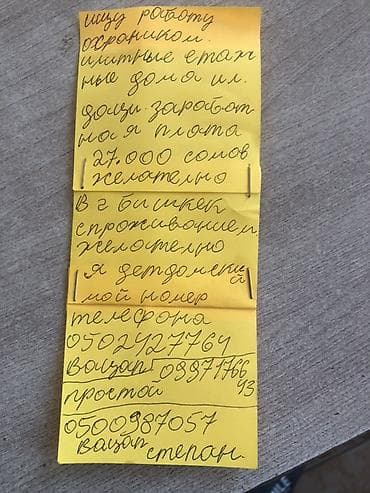 ищу работу
охраником.
илитные етаж
ные дома ил.
дощи. заработ
ная плата
27.000 сомов
желательно
В г Бишкек
спроживанием
желательно
я детдомский
мой номер
телефона
0502427764
Вацап 09971766
43
простой
0500987057
Вацап
степан.